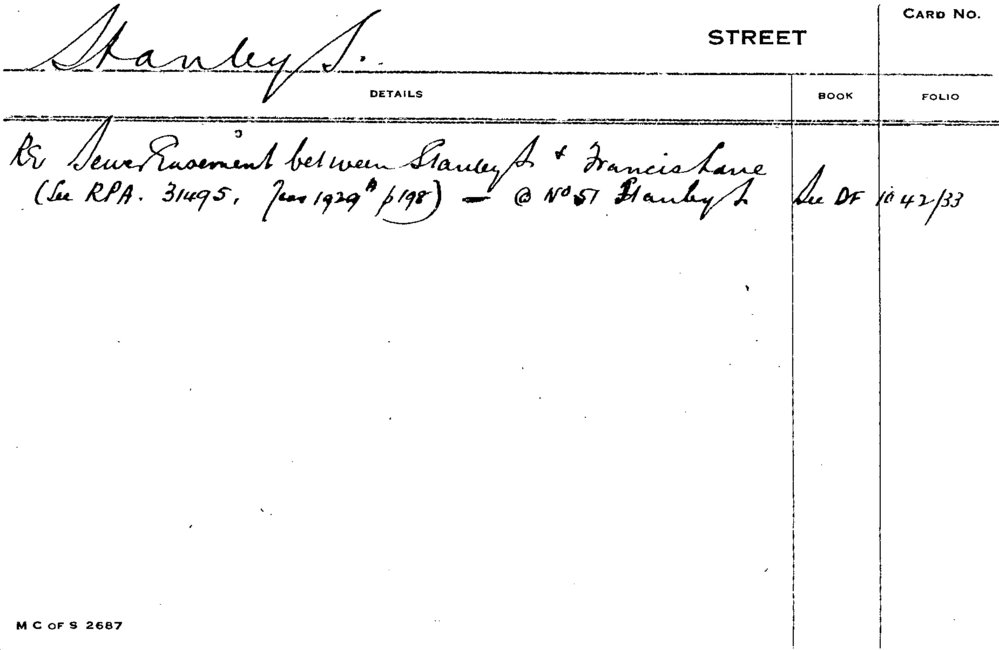 Stanley St. STREET CARD NO.
DETAILS BOOK FOLIO
Re Sewer Easement between Stanley St & Francis Lane
(See RPA. 31495, 1929A p198) — @ No 51 Stanley St See DF 1042/33
M C OF S 2687